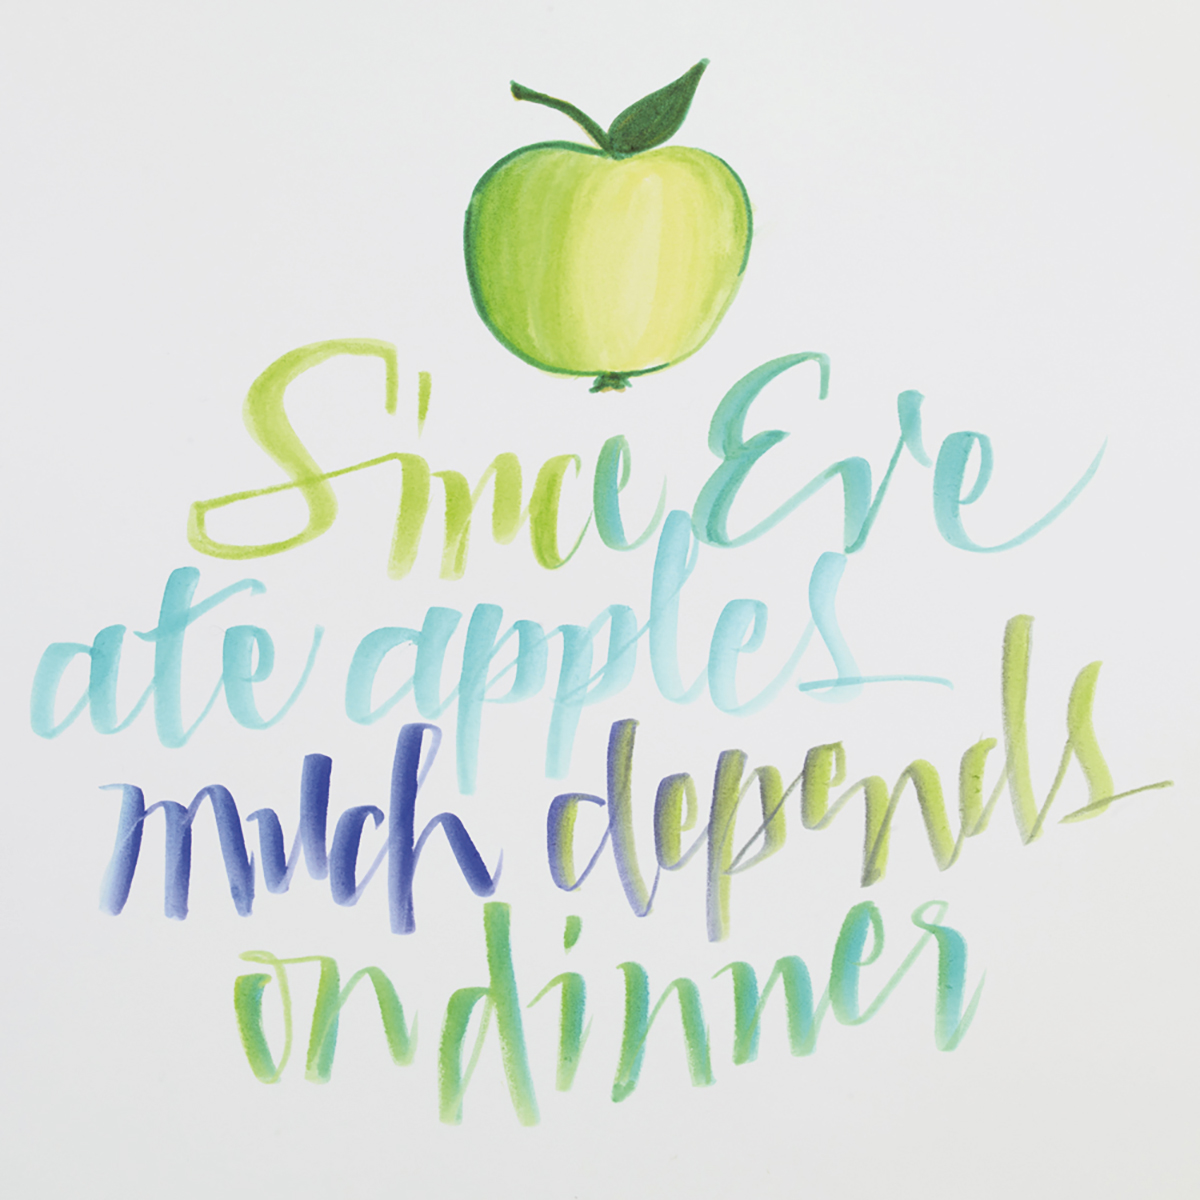 Since Eve
ate apples
much depends
on dinner